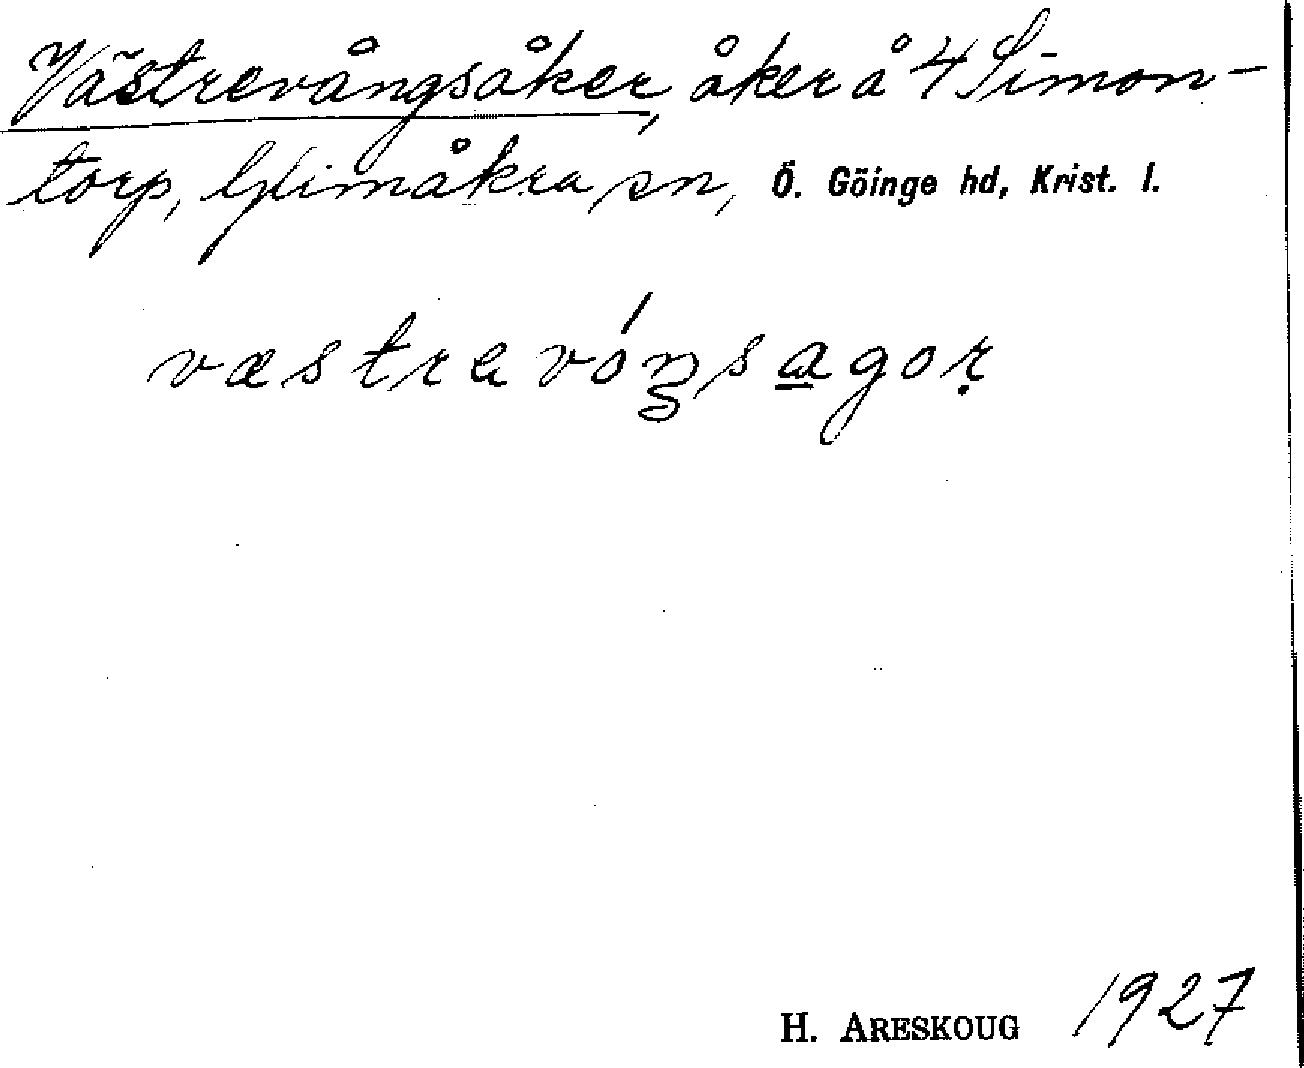 Västrevångsåker, åker å 4 Simon-
torp, Glimåkra sn, Ö. Göinge hd, Krist. l.
væstravóŋsagoṛ
H. ARESKOUG 1927